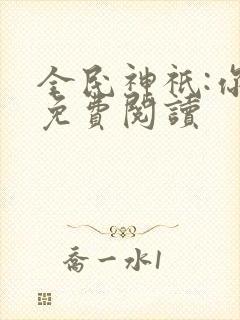 全民神祇:你
免費閱讀
喬一水1